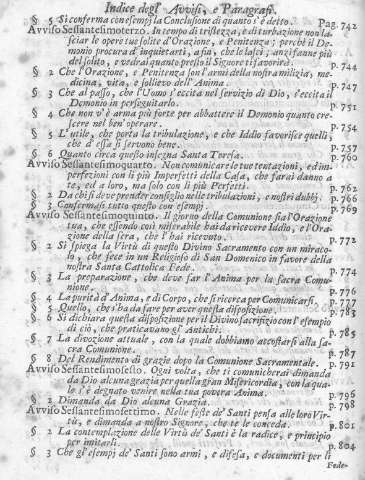 Indice degl' Avvisi, e Paragrafi.
§ 5 Si conferma con esempj la Conclusione di quanto s'è detto. Pag. 742
Avviso Sessantesimoterzo. In tempo di tristezza, e di turbazione non la-
sciar le opere tue solite d'Orazione, e Penitenza; perchè il De-
monio procura d'inquietarti, a fin, che le lasci; anzi fanne più
del solito, e vedrai quanto presto il Signore ti favorirà. p. 744
§ 2 Che l'Orazione, e Penitenza son l'armi della nostra milizia, me-
dicina, vita, e sollievo dell'Anima. p. 747
§ 3 Che al passo, che l'Uomo s'eccita nel servizio di Dio, s'eccita il
Demonio in perseguitarlo. p. 751
§ 4 Che non v'è arma più forte per abbattere il Demonio quanto cre-
scere nel ben'operare. p. 754
§ 5 L'utile, che porta la tribulazione, e che Iddio favorisce quelli
che d'essa si servono bene. p. 757
§ 6 Quanto circa questo insegna Santa Teresa. p. 760
Avviso Sessantesimoquarto. Non comunicare le tue tentazioni, ed im-
perfezioni con li più Imperfetti della Casa, che farai danno a
te, ed a loro, ma solo con li più Perfetti. p. 762
§ 2 Da chi si deve prender consiglio nelle tribulazioni, e nostri dubbj. p. 766
§ 3 Confermasi tutto questo con esempj. p. 769
Avviso Sessantesimoquinto. Il giorno della Comunione sia l'Orazione
tua, che essendo così miserabile hai da ricevere Iddio, e l'Ora-
zione della sera, che l'hai ricevuto. p. 772
§ 2 Si spiega la Virtù di questo Divino Sacramento con un miraco-
lo, che fece in un Religioso di San Domenico in favore della
nostra Santa Cattolica Fede. p. 774
§ 3 La preparazione, che deve far l'Anima per la sacra Comu-
nione. p. 776
§ 4 La purità d'Anima, e di Corpo, che si ricerca per Comunicarsi. p. 777
§ 5 Quello, che s'ha da fare per aver questa disposizione. p. 783
§ 6 Si dichiara questa disposizione per il Divino sacrifizio con l'esempio
di ciò, che praticavano gl' Antichi. p. 785
§ 7 La divozione attuale, con la quale dobbiamo accostarsi alla sa-
cra Comunione. p. 787
§ 8 Del Rendimento di grazie dopo la Comunione Sacramentale. p. 791
Avviso Sessantesimosesto. Ogni volta, che ti comunicherai dimanda
da Dio alcuna grazia per quella gran Misericordia, con la qua-
le s'è degnato venire nella tua povera Anima. p. 796
§ 2 Dimanda da Dio alcuna Grazia. p. 798
Avviso Sessantesimosettimo. Nelle feste de' Santi pensa alle loro Vir-
tù, e dimanda a nostro Signore, che te le conceda. p. 801
§ 2 La contemplazione delle Virtù de' Santi è la radice, e principio
per imitarli. p. 804
§ 3 Che gl'esempj de' Santi sono armi, e difesa, e documenti per li
Fede-